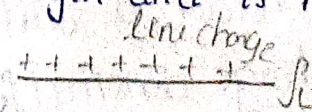 is
line charge
+ + + + + + +
ρL